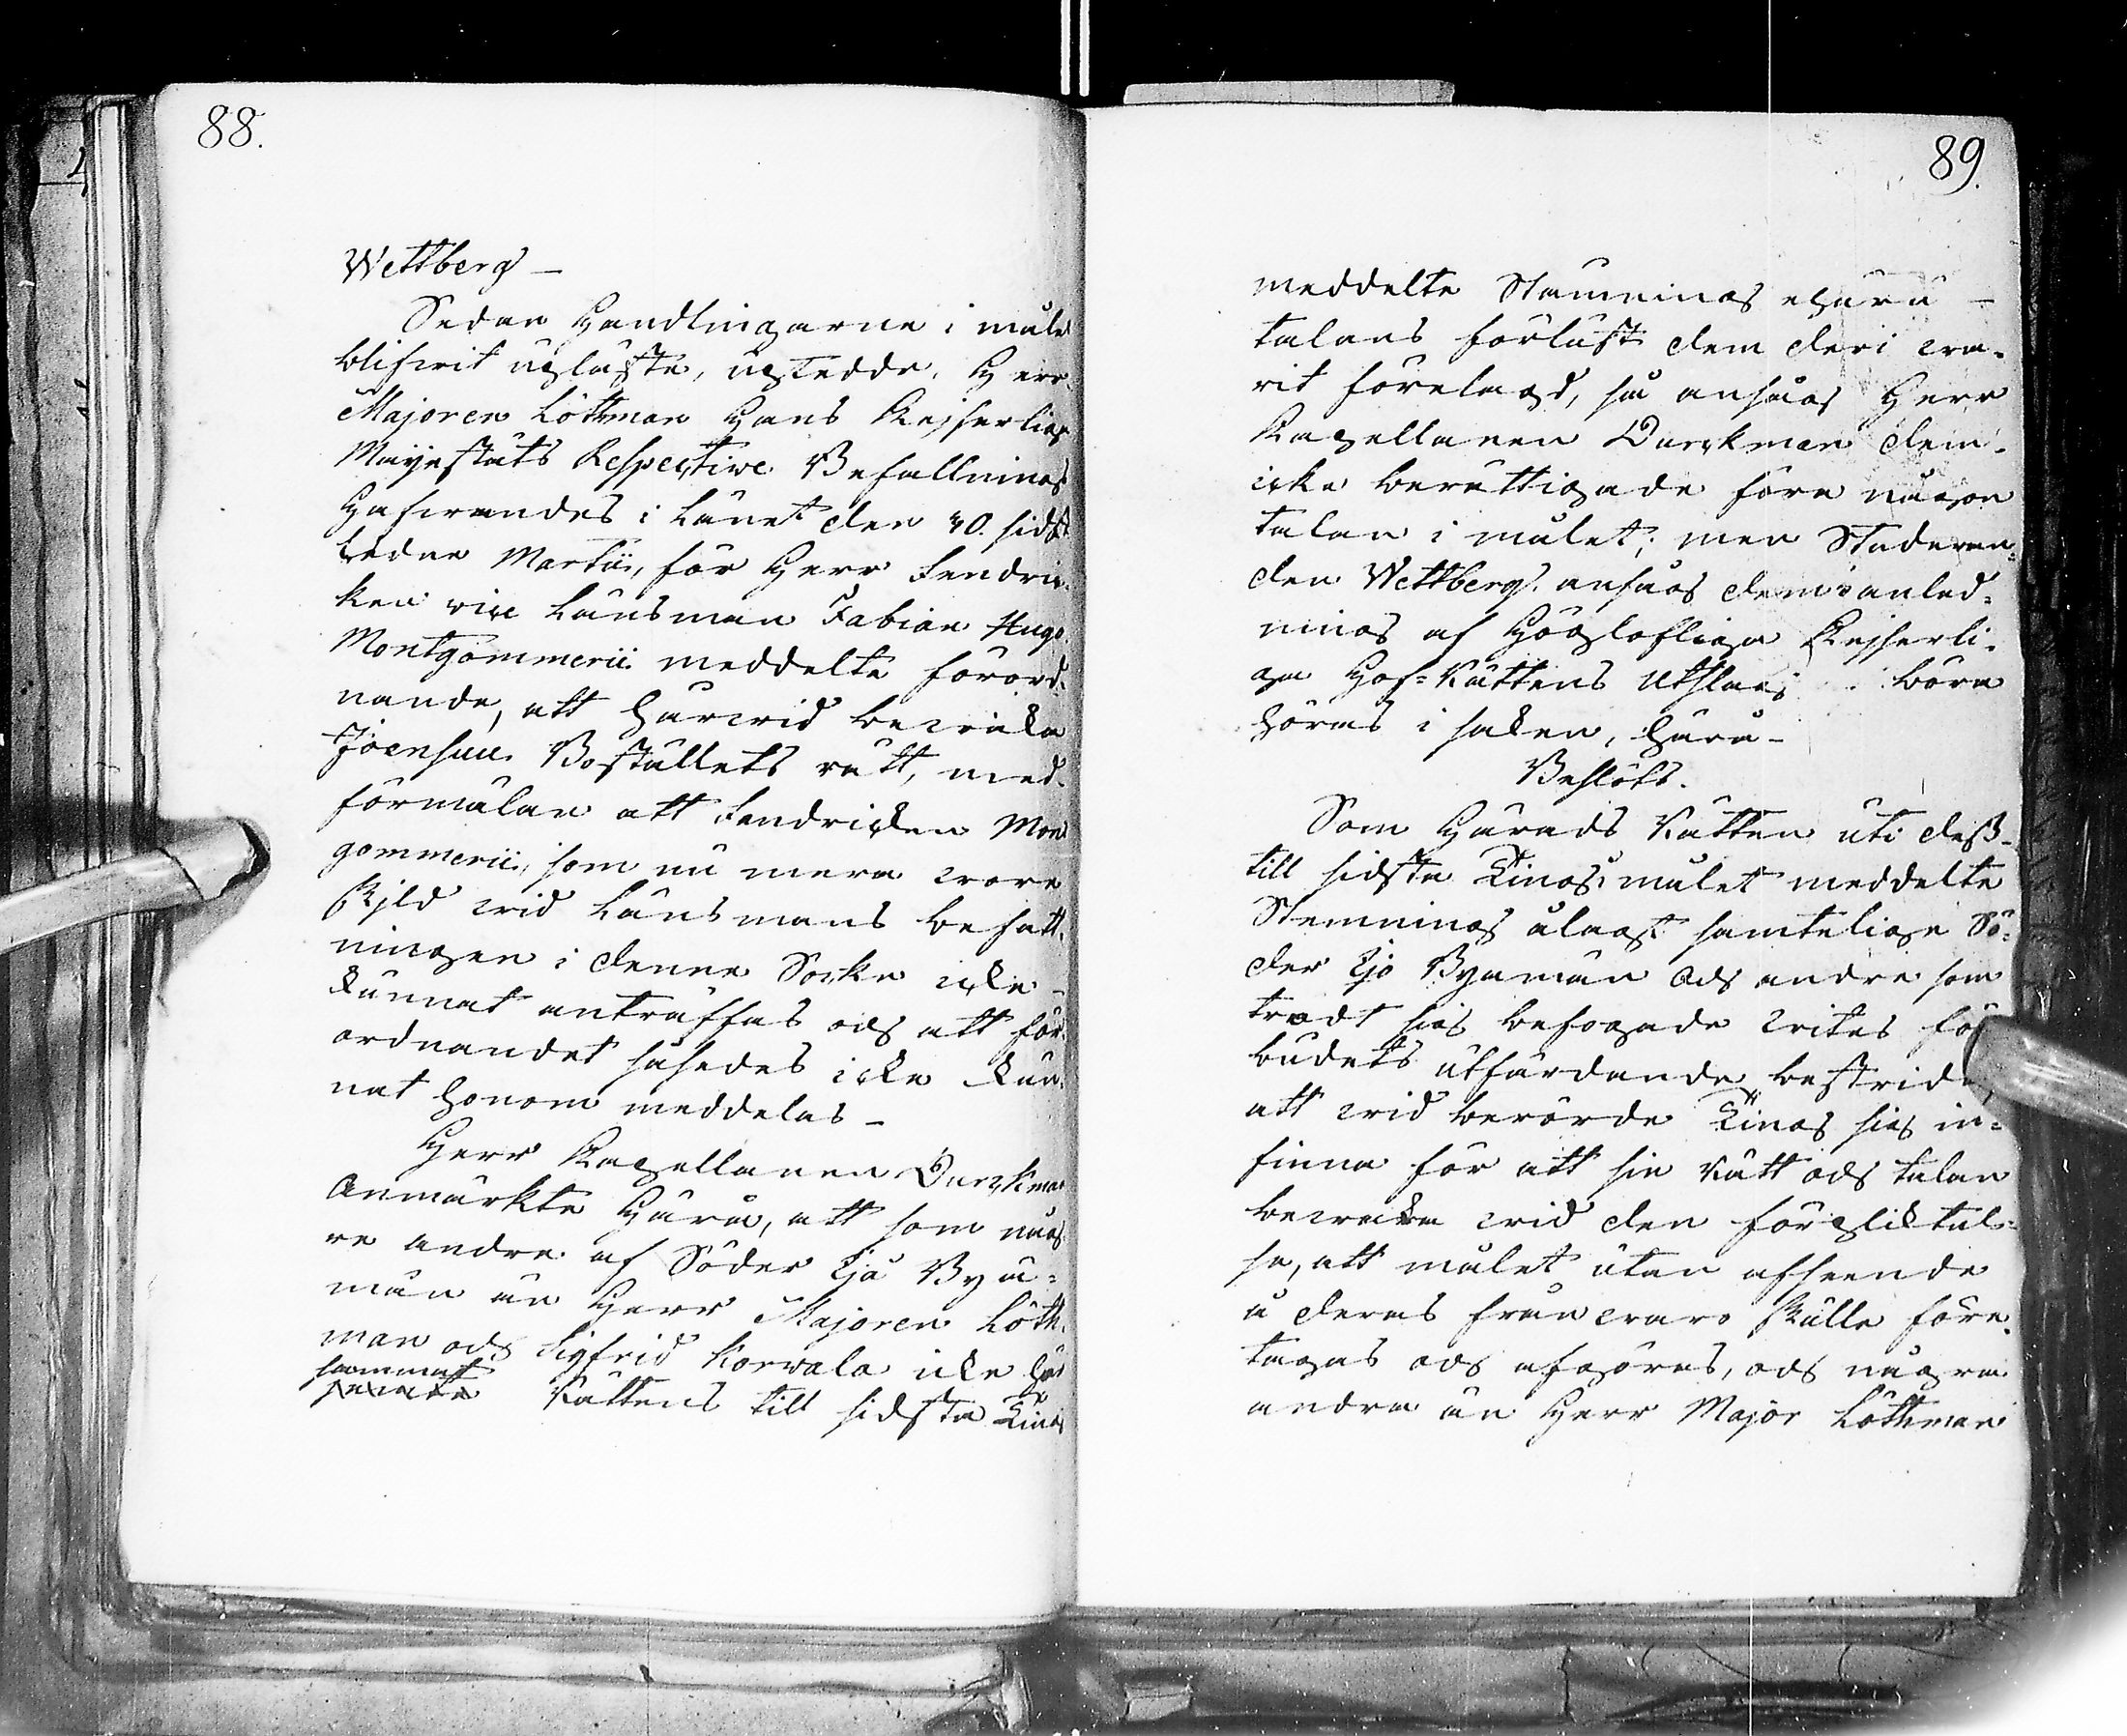 88.
Wettberg —
Sedan Handlingarne i målet
blifwit upläste, uptedde, Herr
Majoren Löthman Hans Kejserlige
Majestäts Respective Befallnings
Hafwandes i Länet den 30. sidst
ledne Martii, för Herr Fendric-
ken vice Länsman Fabian Hugo
Montgommerii meddelte förord-
nande, att härwid bewaka
Joensuu Boställets rätt, med
förmälan att Fendricken Mont
gommerii, som nu mera wore
skild wid Länsmans befatt-
ningen i denne Sockn icke
kunnat anträffas och att för-
ordnandet således icke kun-
nat honom meddelas —
Herr Kapellanen Durckman
Anmärkte härå, att som någ-
re andre af Söder Ejo Bya-
män än Herr Majoren Löth-
man och Sigfrid Korwala icke
hemmat Rättens till sidsta Ting
89.
meddelte Stämning ehuru —
talans förlust dem deri wa-
rit förelagd, så ansågs Herr
Kapellanen Durckman dem
icke berättigade föra någon
talan i målet; men Studeran-
den Wettberg ansågs dem i anled-
ning af Höglofliga Kejserli-
ga Hof-Rättens Utslag böra
höras i saken, hära —
Beslöts.
Som Härads Rätten uti dess
till sidsta Ting i målet meddelte
Stemning ålagt samtelige Sö-
der Ejo Byamän och andre som
trodt sig befogade Wites för
budets utfärdande bestrida,
att wid berörde Ting sig in-
finna för att sin Rätt och talan
bewaka wid den förpliktel-
se, att målet utan afseende
å deras frånwaro skulle före-
tagas och afgöras, och några
andra än Herr Major Löthman